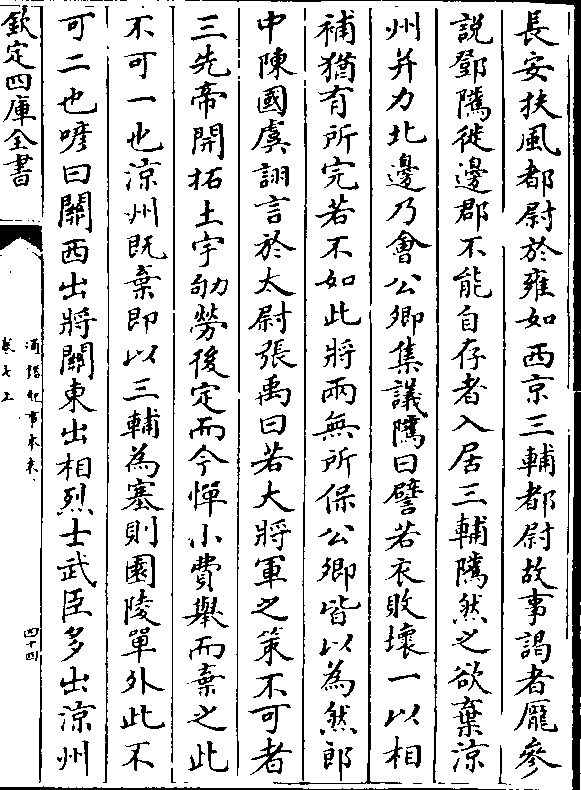 長安扶風都尉於雍如西京三輔都尉故事謁者龎參
說鄧隲徙邊郡不能自存者入居三輔隲然之欲棄涼
州并力北邊乃會公卿集議隲曰譬若衣敗壞一以相
補猶有所完若不如此將兩無所保公卿皆以為然郎
中陳國虞詡言於太尉張禹曰若大將軍之策不可者
三先帝開拓土宇劬勞後定而今憚小費舉而棄之此
不可一也涼州既棄即以三輔為塞則園陵單外此不
可二也喭曰關西出將關東出相烈士武臣多出涼州
欽定四庫全書
通鑑紀事本末
卷七上
四十四